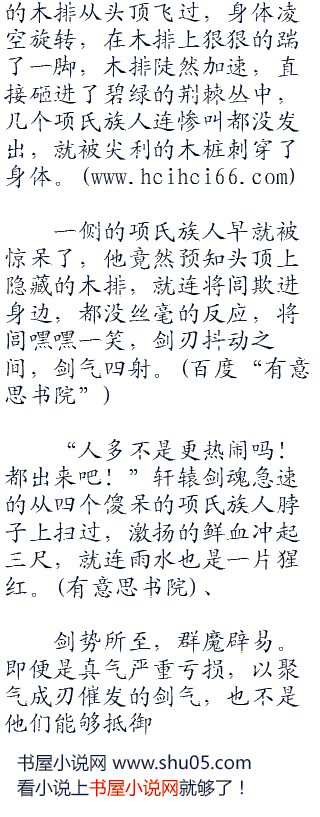 的木排从头顶飞过，身体凌
空旋转，在木排上狠狠的踹
了一脚，木排陡然加速，直
接砸进了碧绿的荆棘丛中，
几个项氏族人连惨叫都没发
出，就被尖利的木桩刺穿了
身体。(www.hcihci66.com)
一侧的项氏族人早就被
惊呆了，他竟然预知头顶上
隐藏的木排，就连将闾欺进
身边，都没丝毫的反应，将
闾嘿嘿一笑，剑刃抖动之
间，剑气四射。(百度“有意
思书院”)
“人多不是更热闹吗！
都出来吧！”轩辕剑魂急速
的从四个傻呆的项氏族人脖
子上扫过，激扬的鲜血冲起
三尺，就连雨水也是一片猩
红。(有意思书院)、
剑势所至，群魔辟易。
即便是真气严重亏损，以聚
气成刃催发的剑气，也不是
他们能够抵御
书屋小说网 www.shu05.com
看小说上书屋小说网就够了！